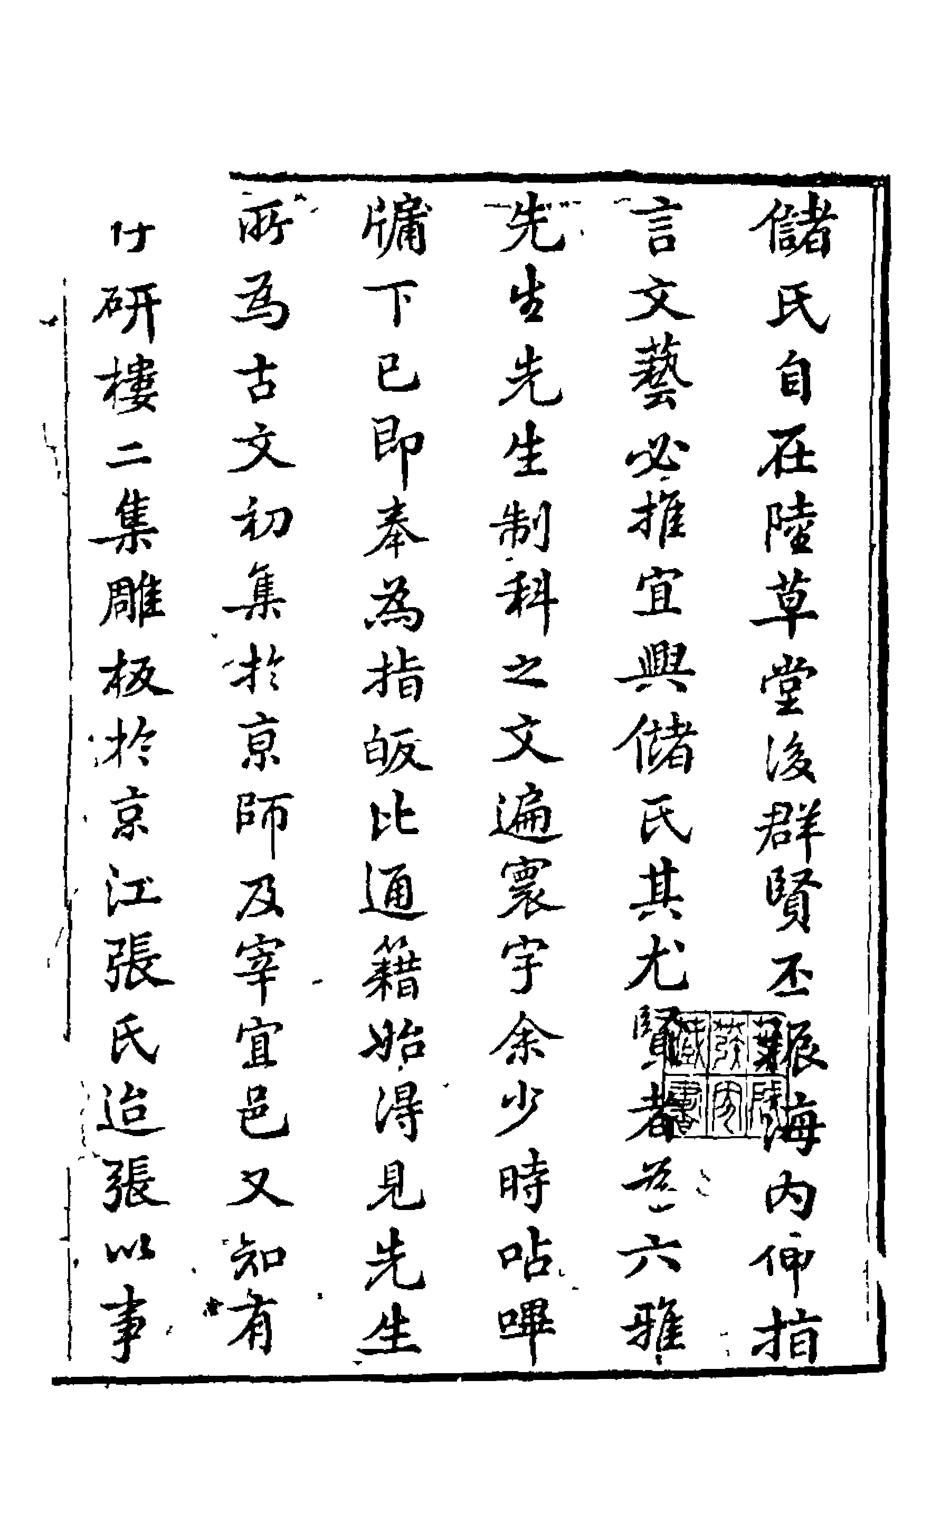 儲氏自在陸草堂後群賢丕振海内伸指
言文藝必推宜興儲氏其尤賢者為六雅
先生先生制科之文遍寰宇余少時呫嗶
牖下已即奉為指皈比通籍始得見先生
所為古文初集於亰師及宰宜邑又知有
存研樓二集雕板於京江張氏迨張以事